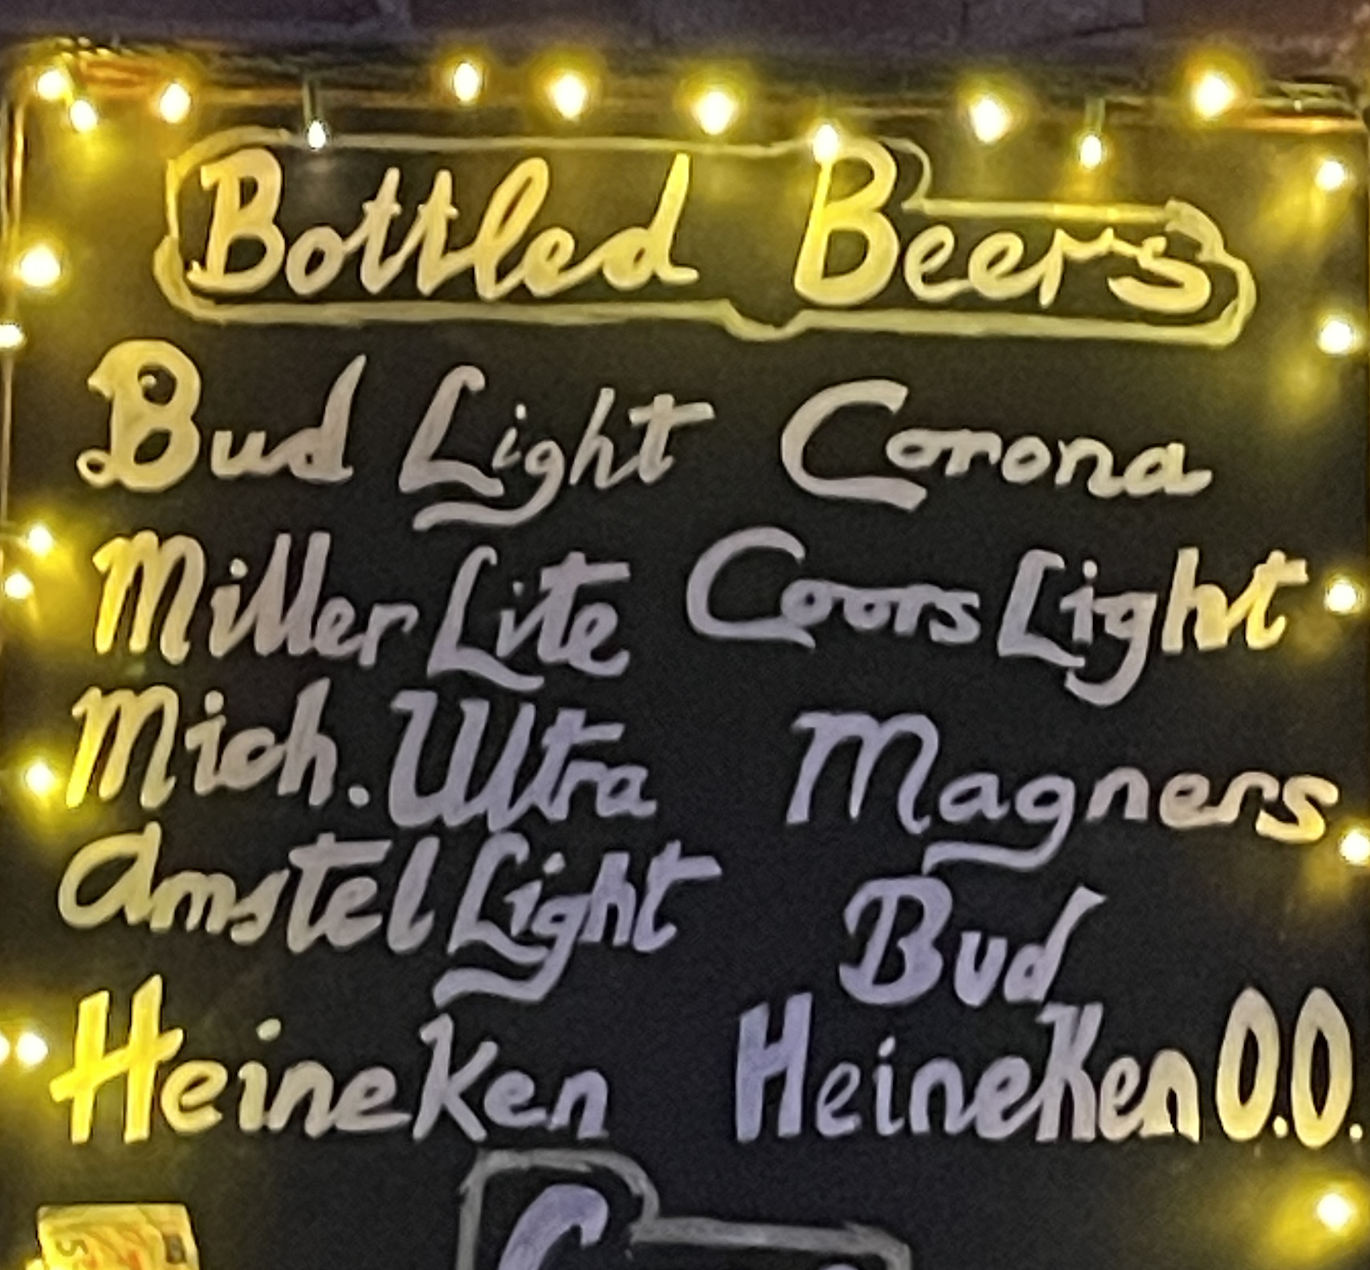 Bottled Beers
Bud Light Corona
Miller Lite Coors Light
Mich. Ultra Magners
Amstel Light Bud
Heineken Heineken 0.0.